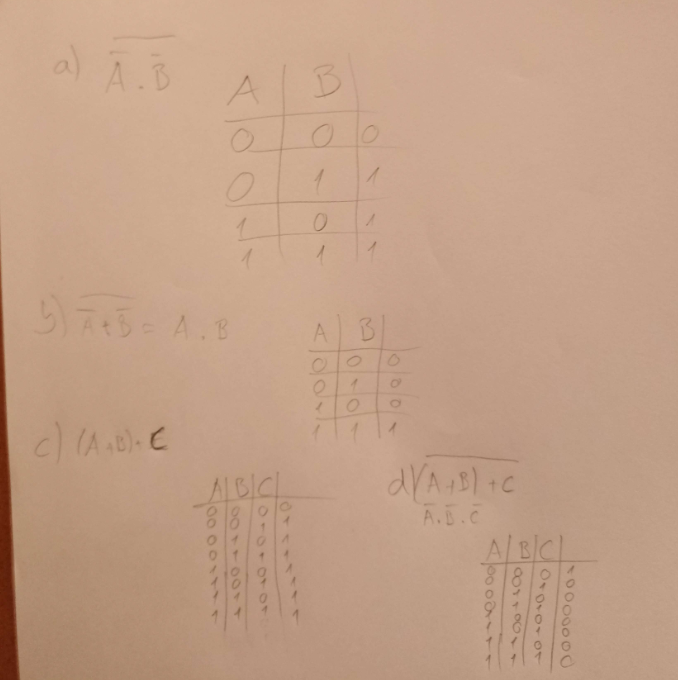 a) \overline{Ā . B̄}
A B
0 0 0
0 1 1
1 0 1
1 1 1
b) \overline{Ā + B̄} = A . B
A B
0 0 0
0 1 0
1 0 0
1 1 1
c) (A+B)+C
A B C
0 0 0 0
0 0 1 1
0 1 0 1
0 1 1 1
1 0 0 1
1 0 1 1
1 1 0 1
1 1 1 1
d) \overline{(A+B)+C}
Ā . B̄ . C̄
A B C
0 0 0 1
0 0 1 0
0 1 0 0
0 1 1 0
1 0 0 0
1 0 1 0
1 1 0 0
1 1 1 0